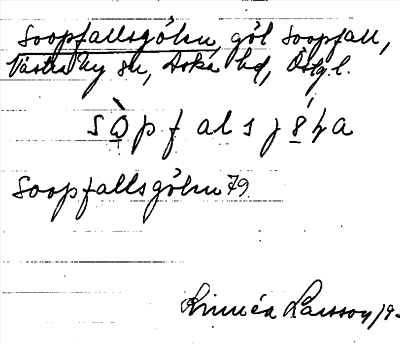 Soopfallsgölen, göl Soopfall,
Västra Ny sn, Aska hd, Östg.l.
sὸ̱pfalsjó̱̈ɳa
Soopfallsgölen 79
Linnéa Larsson